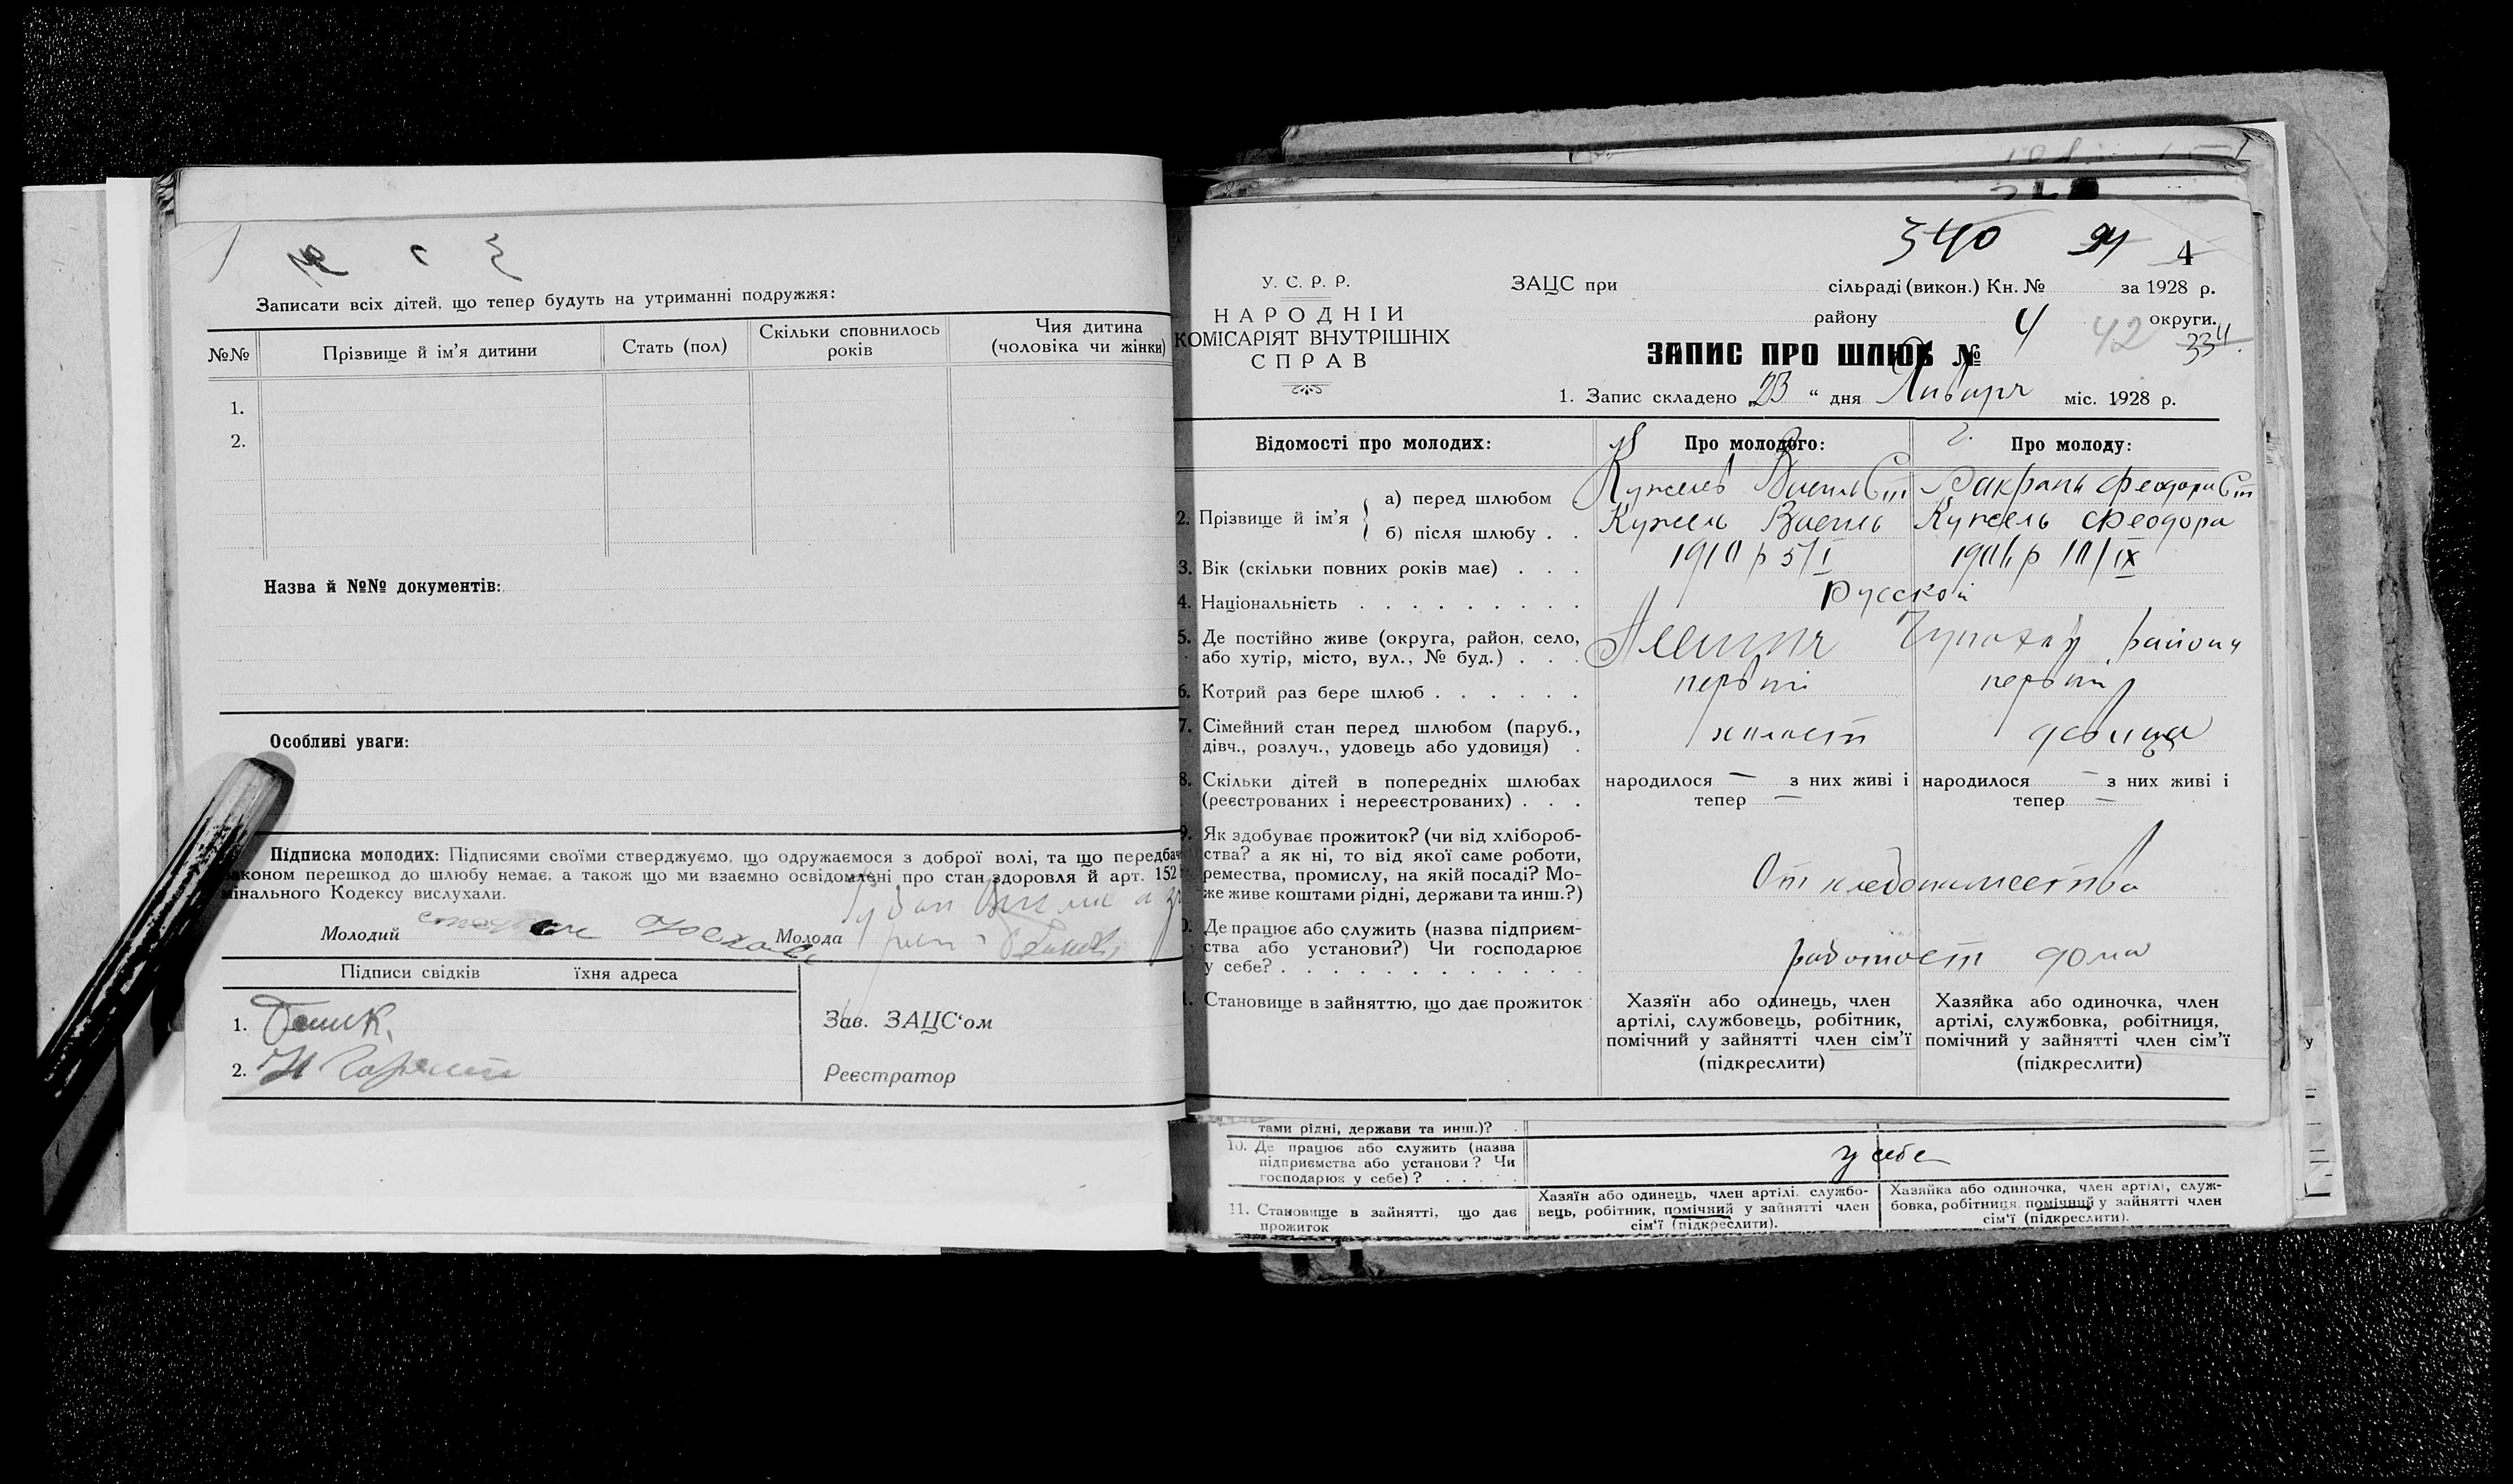 Записати всіх дітей, що тепер будуть на утриманні подружжя:
№№ Прізвище й ім'я дитини Стать (пол) Скільки сповнилось років Чия дитина (чоловіка чи жінки)
1.
2.
Назва й №№ документів:
Особливі уваги:
Підписка молодих: Підписями своїми стверджуємо, що одружаємося з доброї волі, та що передбач
законом перешкод до шлюбу немає, а також що ми взаємно освідомлені про стан здоровля й арт. 152
мінального Кодексу вислухали.
Молодий Молода
Підписи свідків їхня адреса
1.
2.
Зав. ЗАЦС'ом
Реєстратор
340 4
У. С. Р. Р.
НАРОДНІЙ
КОМІСАРІЯТ ВНУТРІШНІХ
СПРАВ
ЗАЦС при сільраді (викон.) Кн. № за 1928 р.
району округи.
42 334
ЗАПИС ПРО ШЛЮБ № 4
1. Запис складено „23“ дня Января міс. 1928 р.
Відомості про молодих: Про молодого: Про молоду:
2. Прізвище й ім'я
а) перед шлюбом Кужель Василь Ст Феодора Ст
б) після шлюбу . . Кужель Василь Кужель Феодора
3. Вік (скільки повних років має) . . . 1910 р 5/I
4. Національність . . . . . . . . . Русской
5. Де постійно живе (округа, район, село,
або хутір, місто, вул., № буд.) . . . района
6. Котрий раз бере шлюб . . . . . . первый первый
7. Сімейний стан перед шлюбом (паруб.,
дівч., розлуч., удовець або удовиця) . холост девица
8. Скільки дітей в попередніх шлюбах
(реєстрованих і нереєстрованих) . . .
народилося — з них живі і тепер —
народилося — з них живі і тепер —
9. Як здобуває прожиток? (чи від хлібороб-
ства? а як ні, то від якої саме роботи,
ремества, промислу, на якій посаді? Мо-
же живе коштами рідні, держави та инш.?)
От хлебопашества
Де працює або служить (назва підприєм-
ства або установи?) Чи господарює
у себе? . . . . . . . . . . . .
работает дома
Становище в зайняттю, що дає прожиток
Хазяїн або одинець, член
артілі, службовець, робітник,
помічний у зайнятті член сім'ї
(підкреслити)
Хазяйка або одиночка, член
артілі, службовка, робітниця,
помічний у зайнятті член сім'ї
(підкреслити)
тами рідні, держави та инш.)? .
10. Де працює або служить (назва
підприємства або установи? Чи
господарює у себе)? . . . . .
у себе
11. Становище в зайнятті, що дає
прожиток
Хазяїн або одинець, член артілі, службо-
вець, робітник, помічний у зайнятті член
сім'ї (підкреслити).
Хазяйка або одиночка, член артілі, служ-
бовка, робітниця, помічний у зайнятті член
сім'ї (підкреслити).